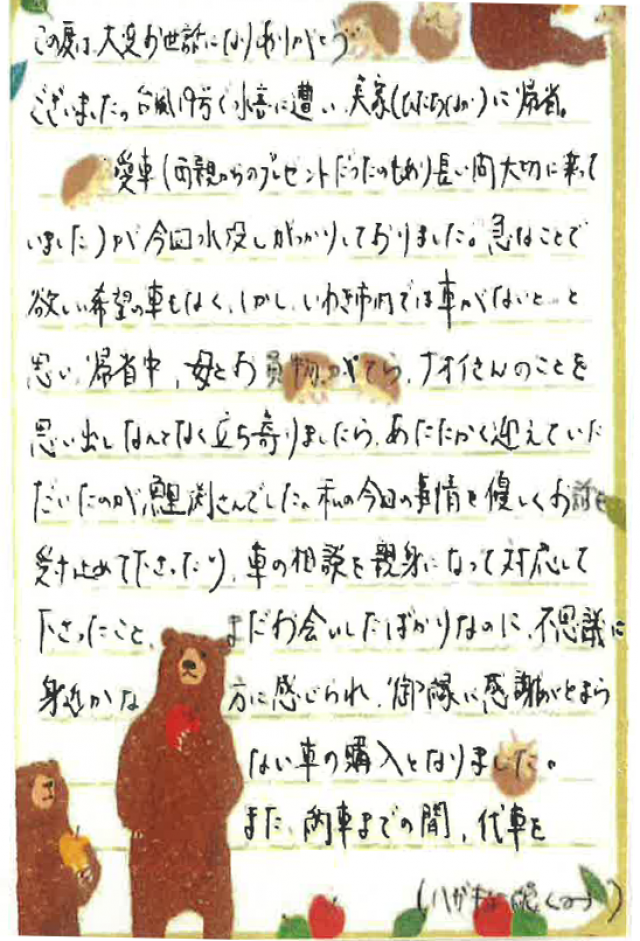 この度は、大変お世話になりありがとう
ございました。台風19号で水害に遭い、実家(ひたちなか)に帰省。
愛車(両親からのプレゼントだったのもあり長い間大切に乗って
いました)が今回水没しがっかりしておりました。急なことで
欲しい希望の車もなく、しかし、いわき市内では車がないと…と
思い、帰省中、母とお買物がてら、ナオイさんのことを
思い出しなんとなく立ち寄りましたら、あたたかく迎えていた
だいたのが、鯉渕さんでした。私の今回の事情を優しくお話を
受け止めて下さったり、車の相談を親身になって対応して
下さったこと、まだお会いしたばかりなのに、不思議に
身近かな方に感じられ、御縁に感謝がとまら
ない車の購入となりました。
また、納車までの間、代車を